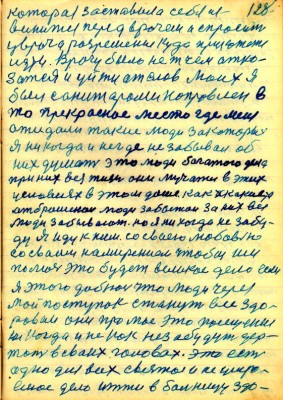 128
которая заставила себя из-
винится перед врачем и спросит
у врача разрешения куда прийти
изву. Врачу было не чем отка-
затся и уйти
был санитарами направлен в
то прекрасное место где меня
ожидали такие люди за которых
я никогда и негде не забывал об
них думать это люди богатого духа
при них все тихо они мучатся в этих
условиях в этом доме. как к каким то
отброшеном люди забытом за них все
люди забывают. но я никогда не забу-
ду я иду к ним. со своею любовью
со своим намерением чтобы им
помоч это будет великое дело если
я этого добюсь что люди через
мой поступок станут все здо-
ровыи они про мое это
ни когда и не как не забудут дер-
жат в своих головах. это есть
одно для всех святое и не
дело итти в больницу здо-